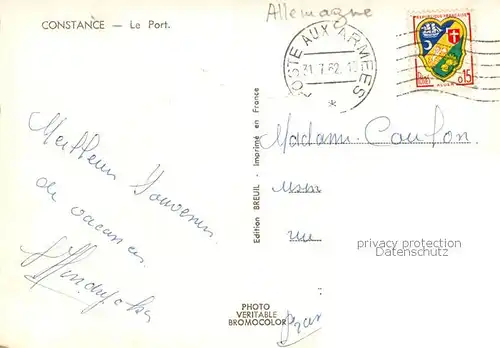 CONSTANCE — Le Port.
Allemagne
POSTE AUX ARMEES
31.7.62
*
REPUBLIQUE FRANÇAISE
POSTES
ALGER
0,15
Meilleur Souvenir
de vacances
Edition BREUIL - Imprimé en France
Madame Coulon
privacy protection
Datenschutz
PHOTO
VERITABLE
BROMOCOLOR